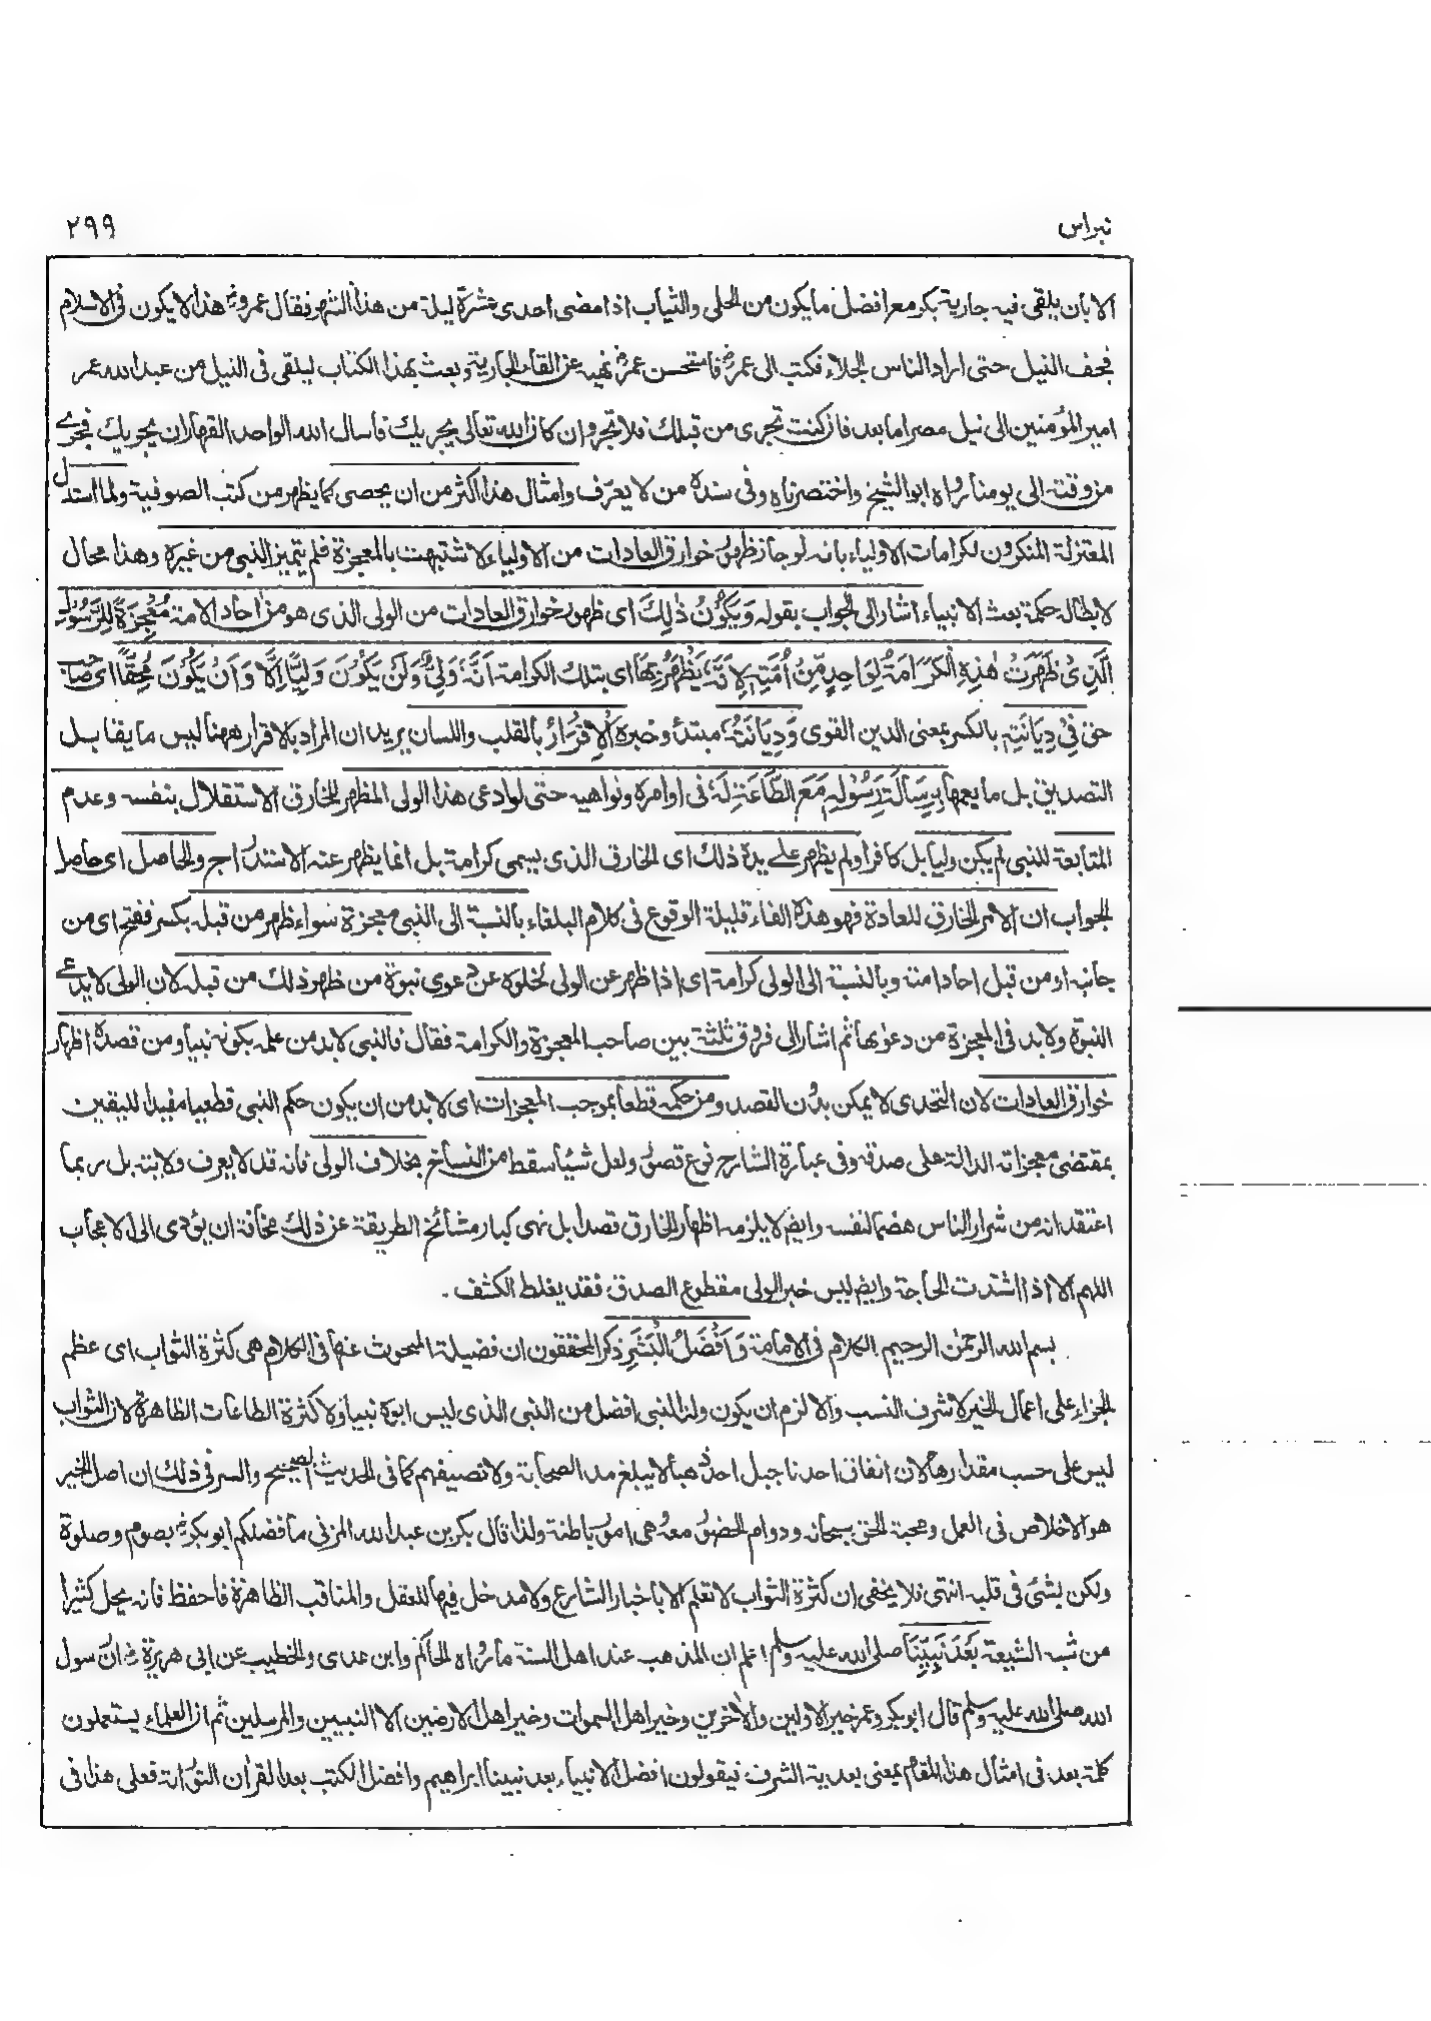 نبراس
٢٩٩
الا بان يلقى فيه جارية بكر مع افضل ما يكون من الحلى والثياب اذا مضى احدى عشرة ليلة من هذا الشهر فقال عمروؓ هذا لا يكون فى الاسلام
فجف النيل حتى اراد الناس الجلاء فكتب الى عمرؓ فاستحسن عمرؓ نهيه عن القاء الجارية وبعث بهذا الكتاب ليلقى فى النيل من عبد الله عمر
امير المؤمنين الى نيل مصر اما بعد فان كنت تجرى من قبلك فلا تجر وان كان الله تعالى يجريك فاسال الله الواحد القهار ان يجريك فجرى
من وقته الى يومنا رواه ابو الشيخ واختصرناه وفى سنده من لا يعرف وامثال هذا اكثر من ان يحصى كما يظهر من كتب الصوفية ولما استدل
المعتزلة المنكرون لكرامات الاولياء بانه لو جاز ظهور خوارق العادات من الاولياء لاشتبهت بالمعجزة فلم يتميز النبى من غيره وهذا محال
لابطاله حكمة بعث الانبياء اشار الى الجواب بقوله وَيَكُوْنُ ذٰلِكَ اى ظهور خوارق العادات من الولى الذى هو من احاد الامة مُعْجِزَةً لِلرَّسُوْلِ
الَّذِىْ ظَهَرَتْ هٰذِهِ الْكَرَامَةُ لِوَاحِدٍ مِّنْ اُمَّتِهٖ لِاَنَّهٗ يَظْهَرُ بِهَا اى بتلك الكرامة اَنَّهٗ وَلِىٌّ وَلَنْ يَكُوْنَ وَلِيًّا اِلَّا وَاَنْ يَكُوْنَ مُحِقًّا اى صاحب
حق فِىْ دِيَانَتِهٖ بالكسر بمعنى الدين القوى وَدِيَانَتُهٗ مبتدأ وخبره اَلْاِقْرَارُ بالقلب واللسان يريد ان المراد بالاقرار ههنا ليس ما يقابل
التصديق بل ما يعمها بِرِسَالَةِ رَسُوْلِهٖ مَعَ الطَّاعَةِ لَهٗ فى اوامره ونواهيه حتى لو ادعى هذا الولى المظهر للخارق الاستقلال بنفسه وعدم
المتابعة للنبى لم يكن وليا بل كافرا ولم يظهر على يده ذلك اى الخارق الذى يسمى كرامة بل انما يظهر عنه الاستدراج والحاصل اى حاصل
الجواب ان الامر الخارق للعادة فهو هذه الفاء قليلة الوقوع فى كلام البلغاء بالنسبة الى النبى معجزة سواء ظهر من قبله بكسر ففتح اى من
جانبه او من قبل احاد امته وبالنسبة الى الولى كرامة اى اذا ظهر عن الولى لخلوه عن دعوى نبوة من ظهر ذلك من قبله لان الولى لا يدعى
النبوة ولا بد فى المعجزة من دعوٰها ثم اشار الى فروق ثلثة بين صاحب المعجزة والكرامة فقال فالنبى لا بد من علمه بكونه نبيا ومن قصده اظهار
خوارق العادات لان التحدى لا يمكن بدون القصد ومن حكمه قطعا بموجب المعجزات اى لا بد من ان يكون حكم النبى قطعيا مفيدا لليقين
بمقتضى معجزاته الدالة على صدقه وفى عبارة الشارح نوع قصور ولعل شيئا سقط من النساخ بخلاف الولى فانه قد لا يعرف ولايته بل ربما
اعتقد انه من شرار الناس هضما لنفسه وايضا لا يلزمه اظهار الخارق قصدا بل نهى كبار مشائخ الطريقة عن ذلك مخافة ان يؤدى الى الاعجاب
اللهم الا اذا اشتدت الحاجة وايضا ليس خبر الولى مقطوع الصدق فقد يغلط الكشف .
بسم الله الرحمٰن الرحيم الكلام فى الامامة وَاَفْضَلُ الْبَشَرِ ذكر المحققون ان فضيلة المبحوث عنها فى الكلام هى كثرة الثواب اى عظم
الجزاء على اعمال الخير لا شرف النسب والا لزم ان يكون ولد النبى افضل من النبى الذى ليس ابوه نبيا ولا كثرة الطاعات الظاهرة لان الثواب
ليس على حسب مقدارها لان انفاق احدنا جبل احد ذهبا لا يبلغ مد الصحابة ولا نصيفهم كما فى الحديث الصحيح والسر فى ذلك ان اصل الخير
هو الاخلاص فى العمل ومحبة الحق سبحانه ودوام الحضور معه هى امور باطنة ولذا قال بكر بن عبد الله المزنى ما فضلكم ابو بكرؓ بصوم وصلوة
ولكن بشئ فى قلبه انتهى فلا يخفى ان كثرة الثواب لا تعلم الا باخبار الشارع ولا مدخل فيها للعقل والمناقب الظاهرة فاحفظ فانه يحل كثيرا
من شبه الشيعة بَعْدَ نَبِيِّنَا صلى الله عليه وسلم اعلم ان المذهب عند اهل السنة ما رواه الحاكم وابن عدى والخطيب عن ابى هريرةؓ ان رسول
الله صلى الله عليه وسلم قال ابو بكر وعمر خير الاولين والاٰخرين وخير اهل السموات وخير اهل الارضين الا النبيين والمرسلين ثم ان العلماء يستعملون
كلمة بعد فى امثال هذا المقام بمعنى بعدية الشرف فيقولون افضل الانبياء بعد نبينا ابراهيم وافضل الكتب بعد القرأن التوراة فعلى هذا فى